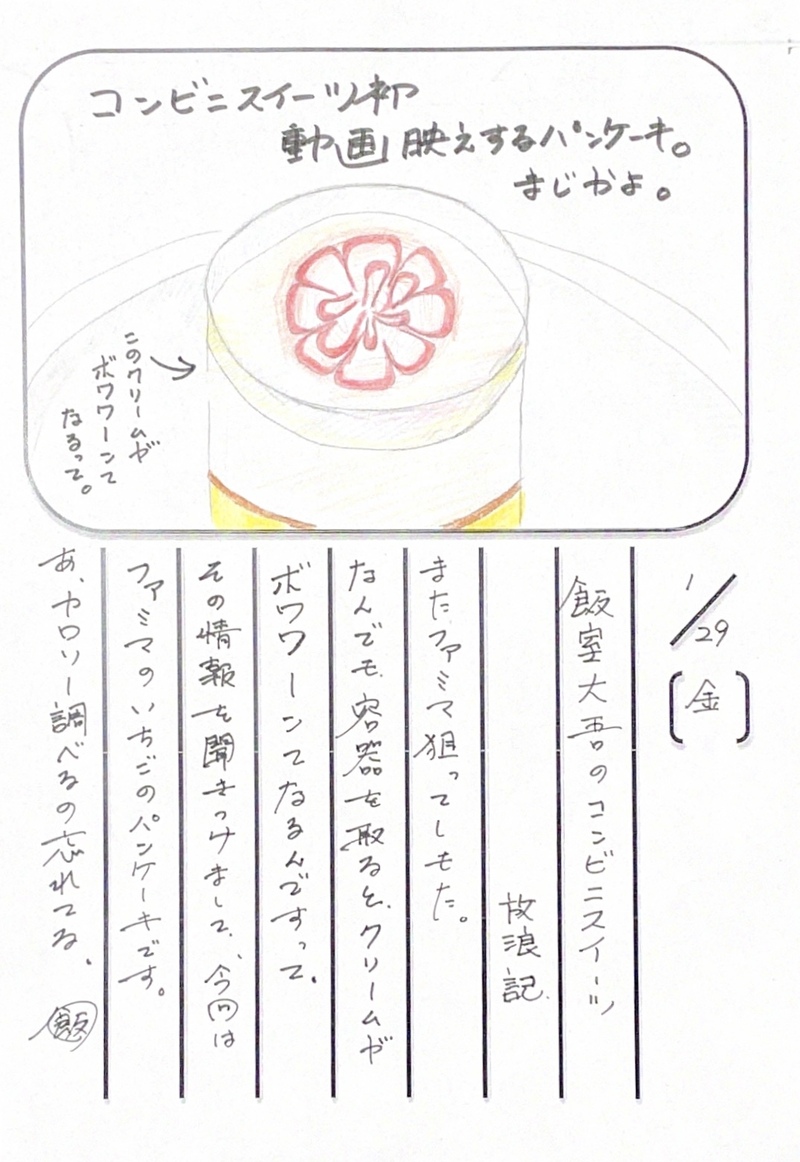 コンビニスイーツ初
動画映えするパンケーキ。
まじかよ。
このクリームが
ボワワーンて
なるって。
1/29
[金]
飯室大吾のコンビニスイーツ
放浪記.
またファミマ狙ってしもた。
なんでも、容器を取ると、クリームが
ボワワーンてなるんですって.
その情報を聞きつけまして、今回は
ファミマのいちごのパンケーキです。
あ、カロリー調べるの忘れてる.
飯